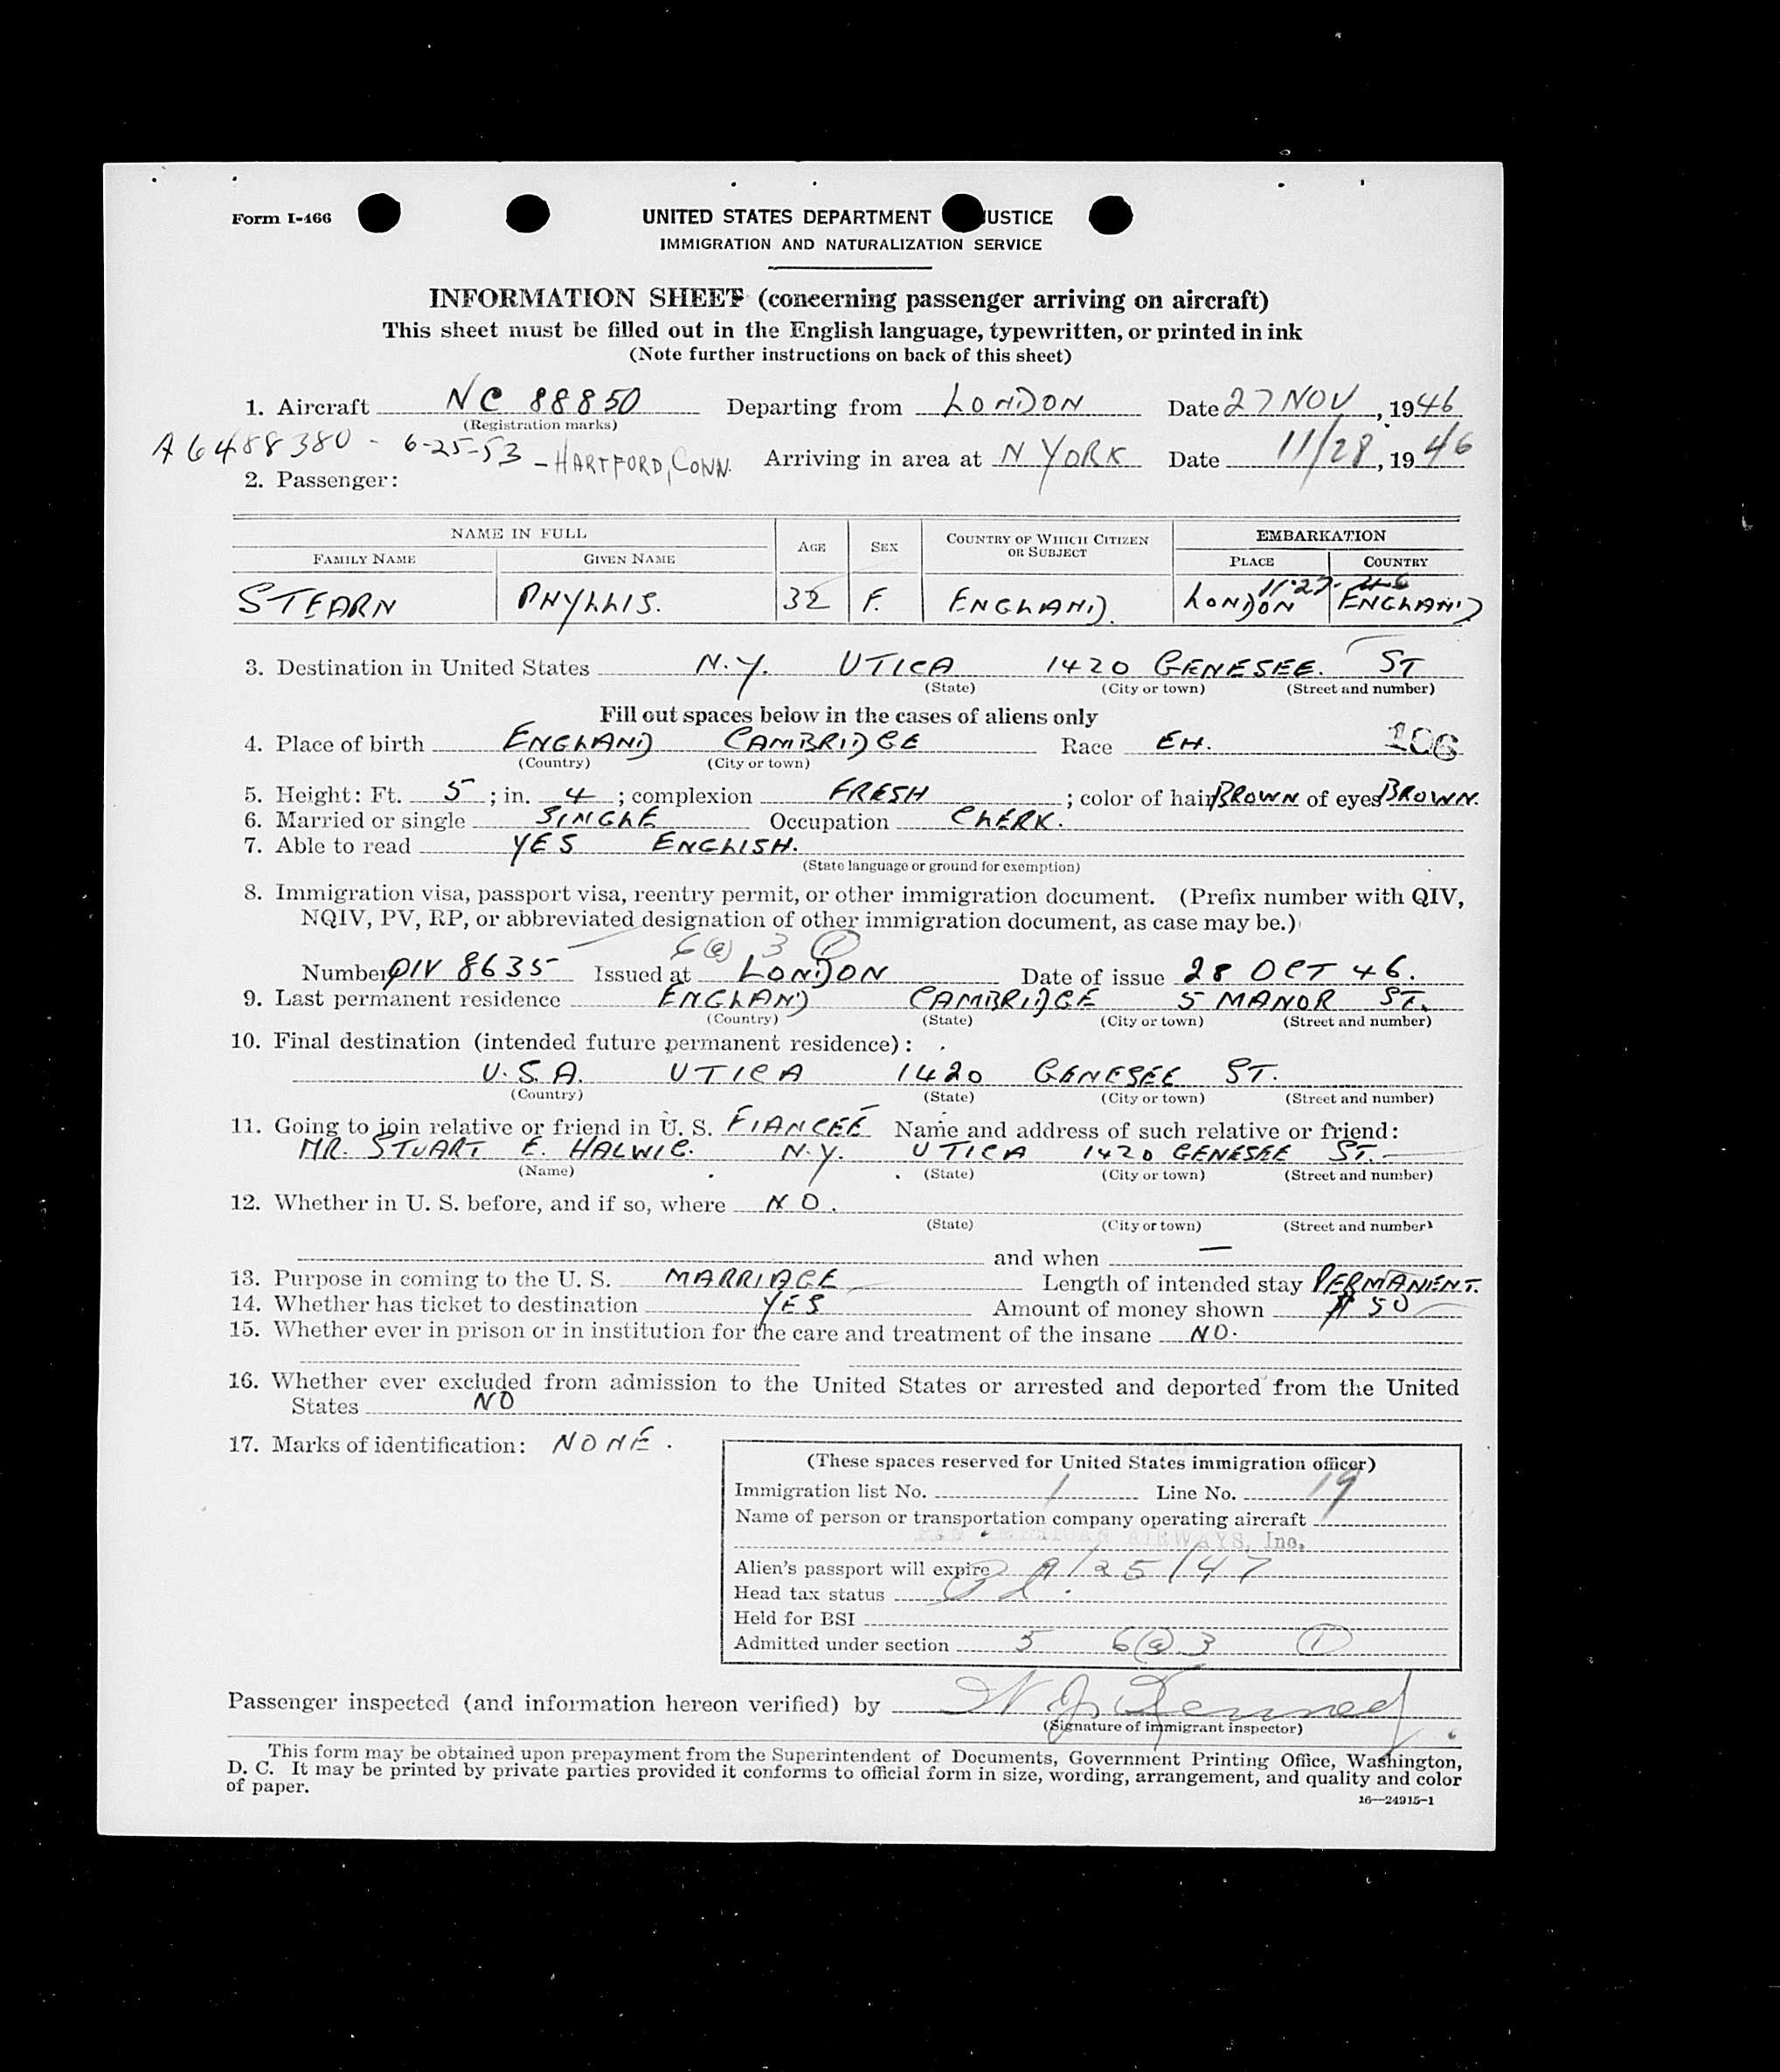 Form I-466
UNITED STATES DEPARTMENT USTICE
IMMIGRATION AND NATURALIZATION SERVICE
INFORMATION SHEET (concerning passenger arriving on aircraft)
This sheet must be filled out in the English language, typewritten, or printed in ink
(Note further instructions on back of this sheet)
1. Aircraft NC 88850 Departing from LONDON Date 27 NOV, 1946
(Registration marks)
A6488380 - 6-25-53 - HARTFORD, CONN. Arriving in area at N YORK Date 11/28, 1946
2. Passenger:
NAME IN FULL AGE SEX COUNTRY OF WHICH CITIZEN OR SUBJECT EMBARKATION
FAMILY NAME GIVEN NAME PLACE COUNTRY
11-27-46
STEARN PHYLLIS. 32 F. ENGLAND. LONDON ENGLAND
3. Destination in United States N.Y. UTICA 1420 GENESEE. ST
(State) (City or town) (Street and number)
Fill out spaces below in the cases of aliens only
4. Place of birth ENGLAND CAMBRIDGE Race EH. 106
(Country) (City or town)
5. Height: Ft. 5; in. 4; complexion FRESH; color of hair BROWN of eyes BROWN.
6. Married or single SINGLE Occupation CLERK.
7. Able to read YES ENGLISH.
(State language or ground for exemption)
8. Immigration visa, passport visa, reentry permit, or other immigration document. (Prefix number with QIV,
NQIV, PV, RP, or abbreviated designation of other immigration document, as case may be.)
6(a) 3 (1)
Number QIV 8635 Issued at LONDON Date of issue 28 OCT 46.
9. Last permanent residence ENGLAND CAMBRIDGE 5 MANOR ST.
(Country) (State) (City or town) (Street and number)
10. Final destination (intended future permanent residence):
U.S.A. UTICA 1420 GENESEE ST.
(Country) (State) (City or town) (Street and number)
11. Going to join relative or friend in U. S. FIANCEÉ Name and address of such relative or friend:
MR. STUART E. HALWIG. N.Y. UTICA 1420 GENESEE ST.
(Name) (State) (City or town) (Street and number)
12. Whether in U. S. before, and if so, where NO.
(State) (City or town) (Street and number)
and when —
13. Purpose in coming to the U. S. MARRIAGE Length of intended stay PERMANENT.
14. Whether has ticket to destination YES Amount of money shown $ 50
15. Whether ever in prison or in institution for the care and treatment of the insane NO.
16. Whether ever excluded from admission to the United States or arrested and deported from the United
States NO
17. Marks of identification: NONE.
(These spaces reserved for United States immigration officer)
Immigration list No. 1 Line No. 19
Name of person or transportation company operating aircraft
PAN AMERICAN AIRWAYS, Inc.
Alien's passport will expire 9/25/47
Head tax status
Held for BSI
Admitted under section 5 6(a) 3 (1)
Passenger inspected (and information hereon verified) by
(Signature of immigrant inspector)
This form may be obtained upon prepayment from the Superintendent of Documents, Government Printing Office, Washington,
D. C. It may be printed by private parties provided it conforms to official form in size, wording, arrangement, and quality and color
of paper.
16—24915-1